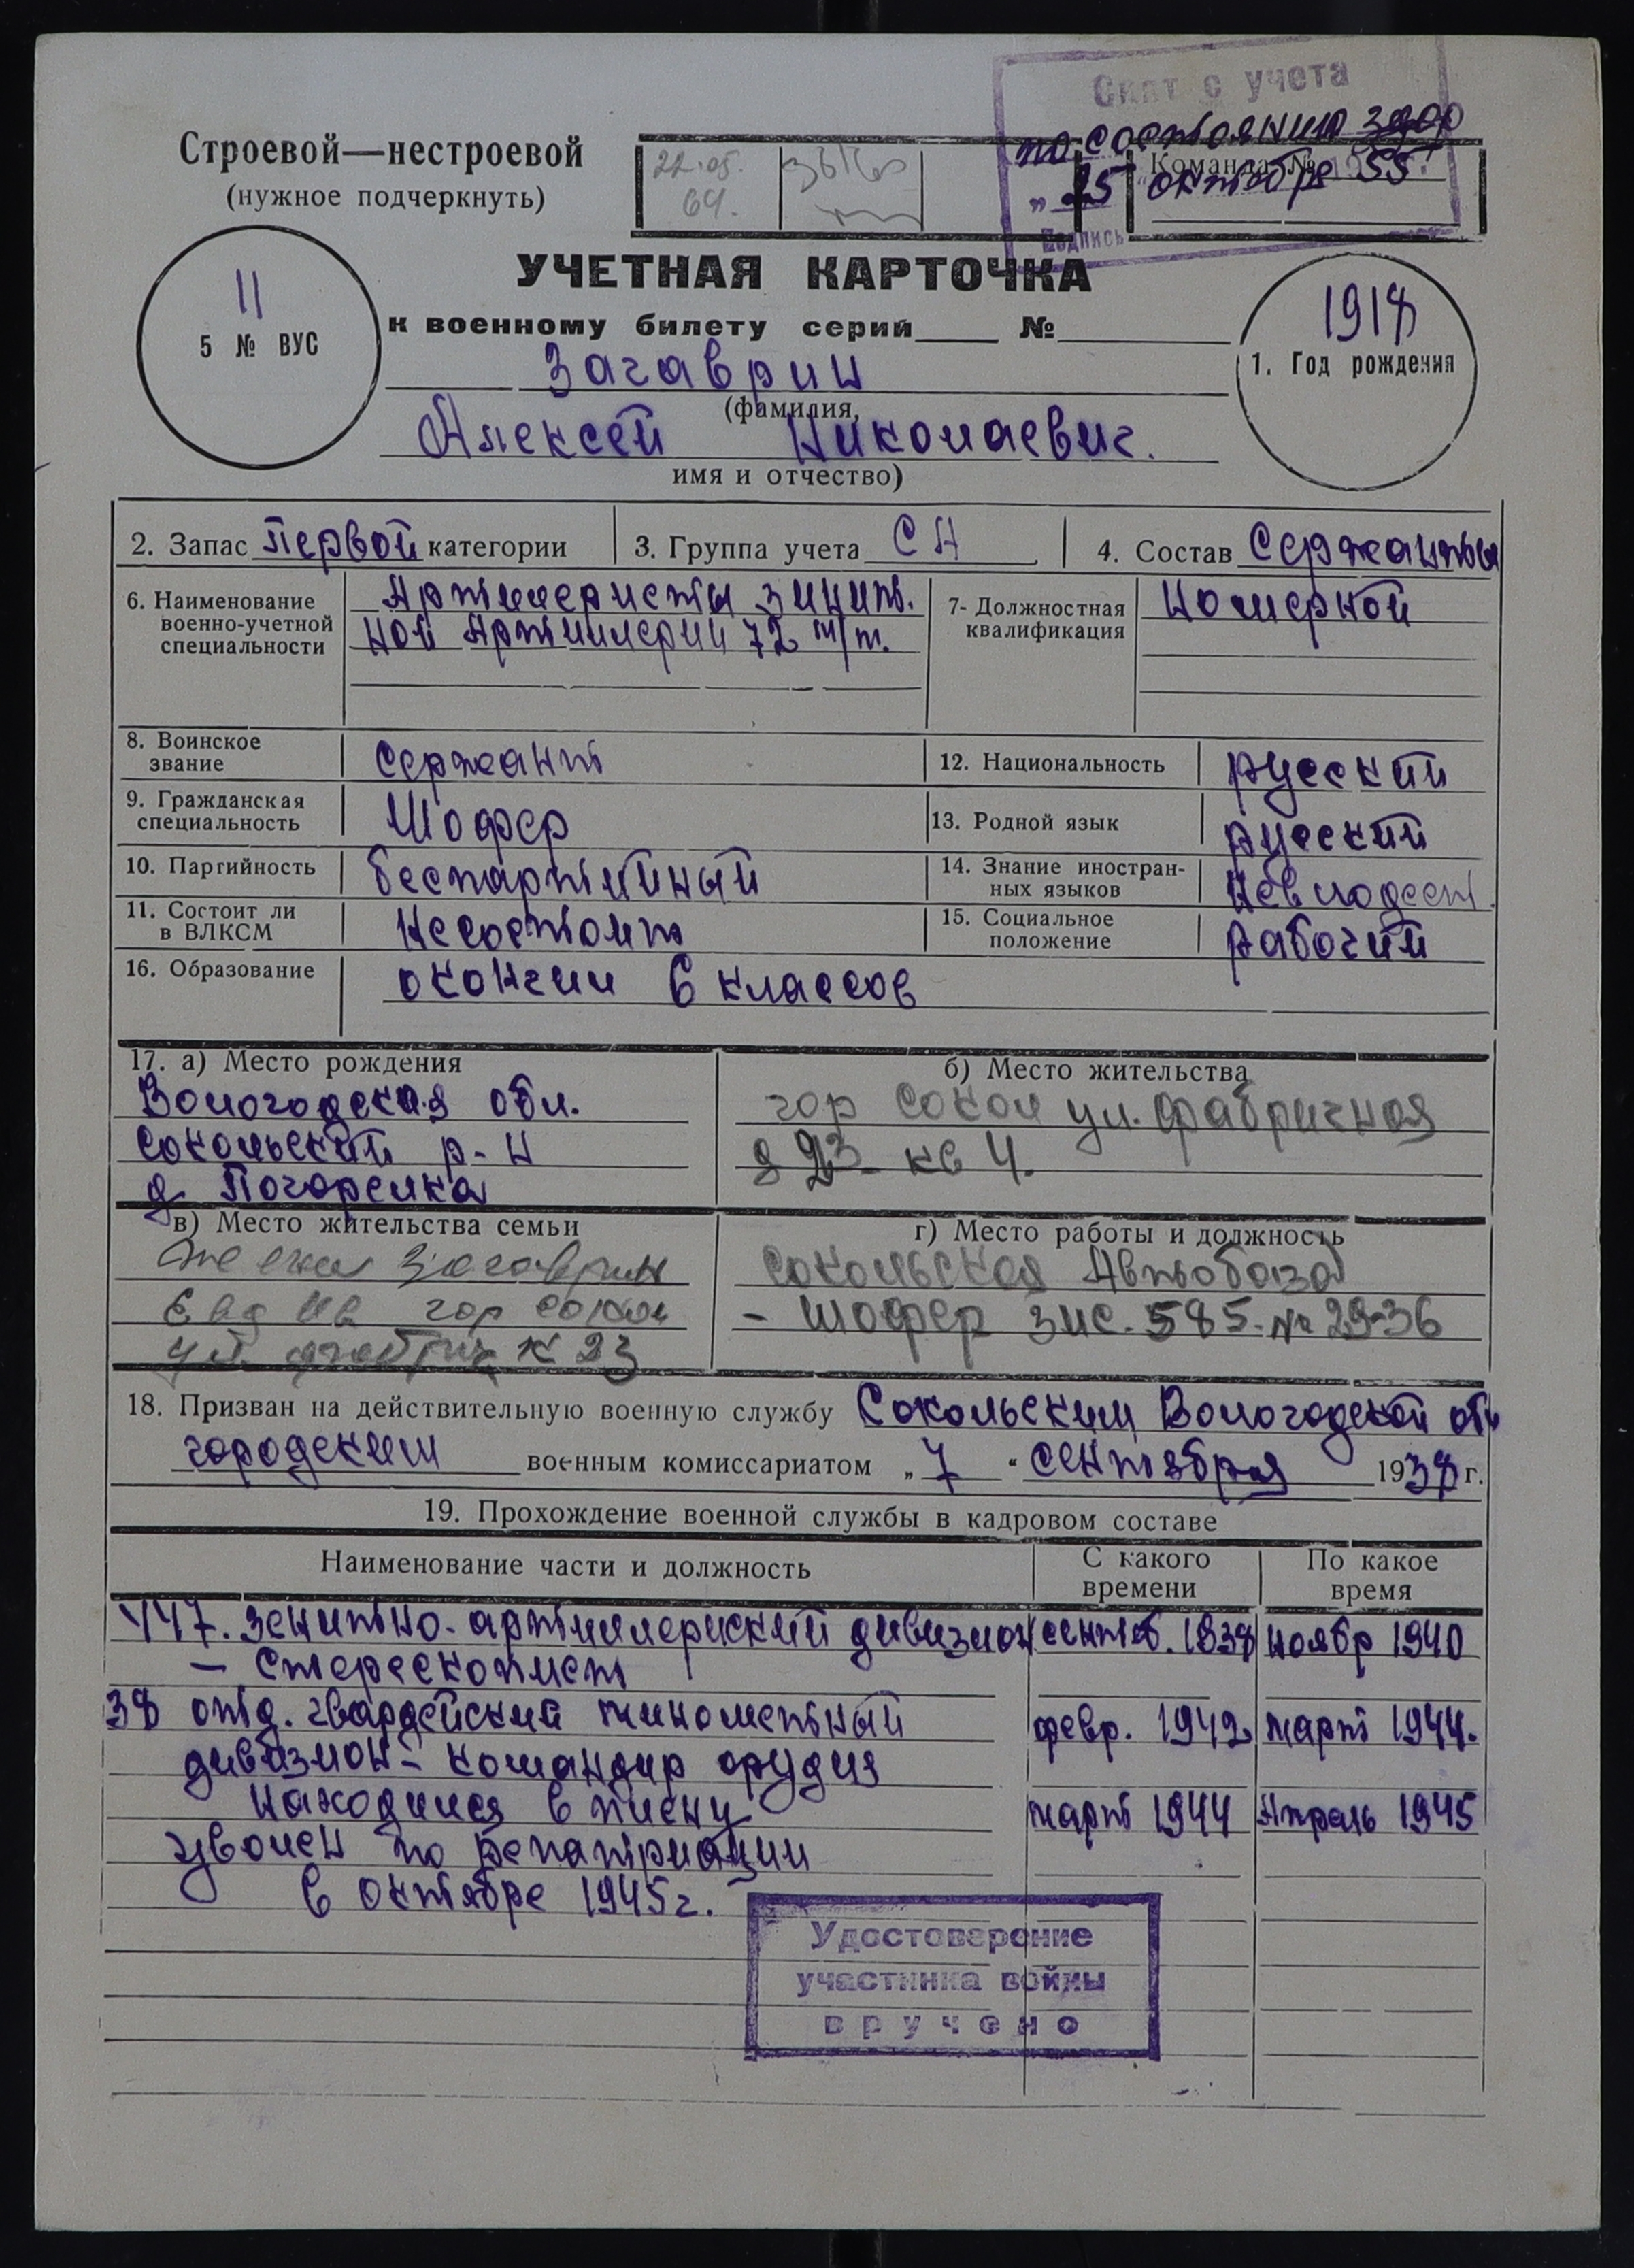 Снят с учета
по состоянию здор
„25" октября 1955 г.
Подпись
Строевой—нестроевой
(нужное подчеркнуть)
22.05.
64.
Команда №
УЧЕТНАЯ КАРТОЧКА
к военному билету серий ____ № ____
11
5 № ВУС
1918
1. Год рождения
Загаврин
(фамилия,
Алексей Николаевич.
имя и отчество)
2. Запас первой категории
3. Группа учета СА
4. Состав Сержанты
6. Наименование военно-учетной специальности
Артиллеристы зинит.
ной Артиллерии 72 м/м.
7- Должностная квалификация
Номерной
8. Воинское звание Сержант
12. Национальность русский
9. Гражданская специальность Шофер
13. Родной язык русский
10. Партийность беспартийный
14. Знание иностранных языков Невладеет.
11. Состоит ли в ВЛКСМ Несостоит
15. Социальное положение рабочий
16. Образование окончил 6 классов
17. а) Место рождения
Вологодская обл.
Сокольский р-н
д. Погорелка
б) Место жительства
гор Сокол ул. фабричная
д 23 - кв 4.
в) Место жительства семьи
жена Загаврин
Евд Ив гор Сокол
ул. фабрич 23
г) Место работы и должность
Сокольская Автобаза
- шофер зис. 585. № 29-36
18. Призван на действительную военную службу Сокольским Вологодской обл
городским военным комиссариатом „7" сентября 1938 г.
19. Прохождение военной службы в кадровом составе
Наименование части и должность
С какого времени
По какое время
447. зенитно-артиллериский дивизион сентяб. 1938 ноябр 1940
- стерескопист
38 отд. гвардейский минометный февр. 1942 март 1944.
дивизион - командир орудия
находился в плену март 1944 Апрель 1945
уволен по репатриации
в октябре 1945г.
Удостоверение
участника войны
вручено